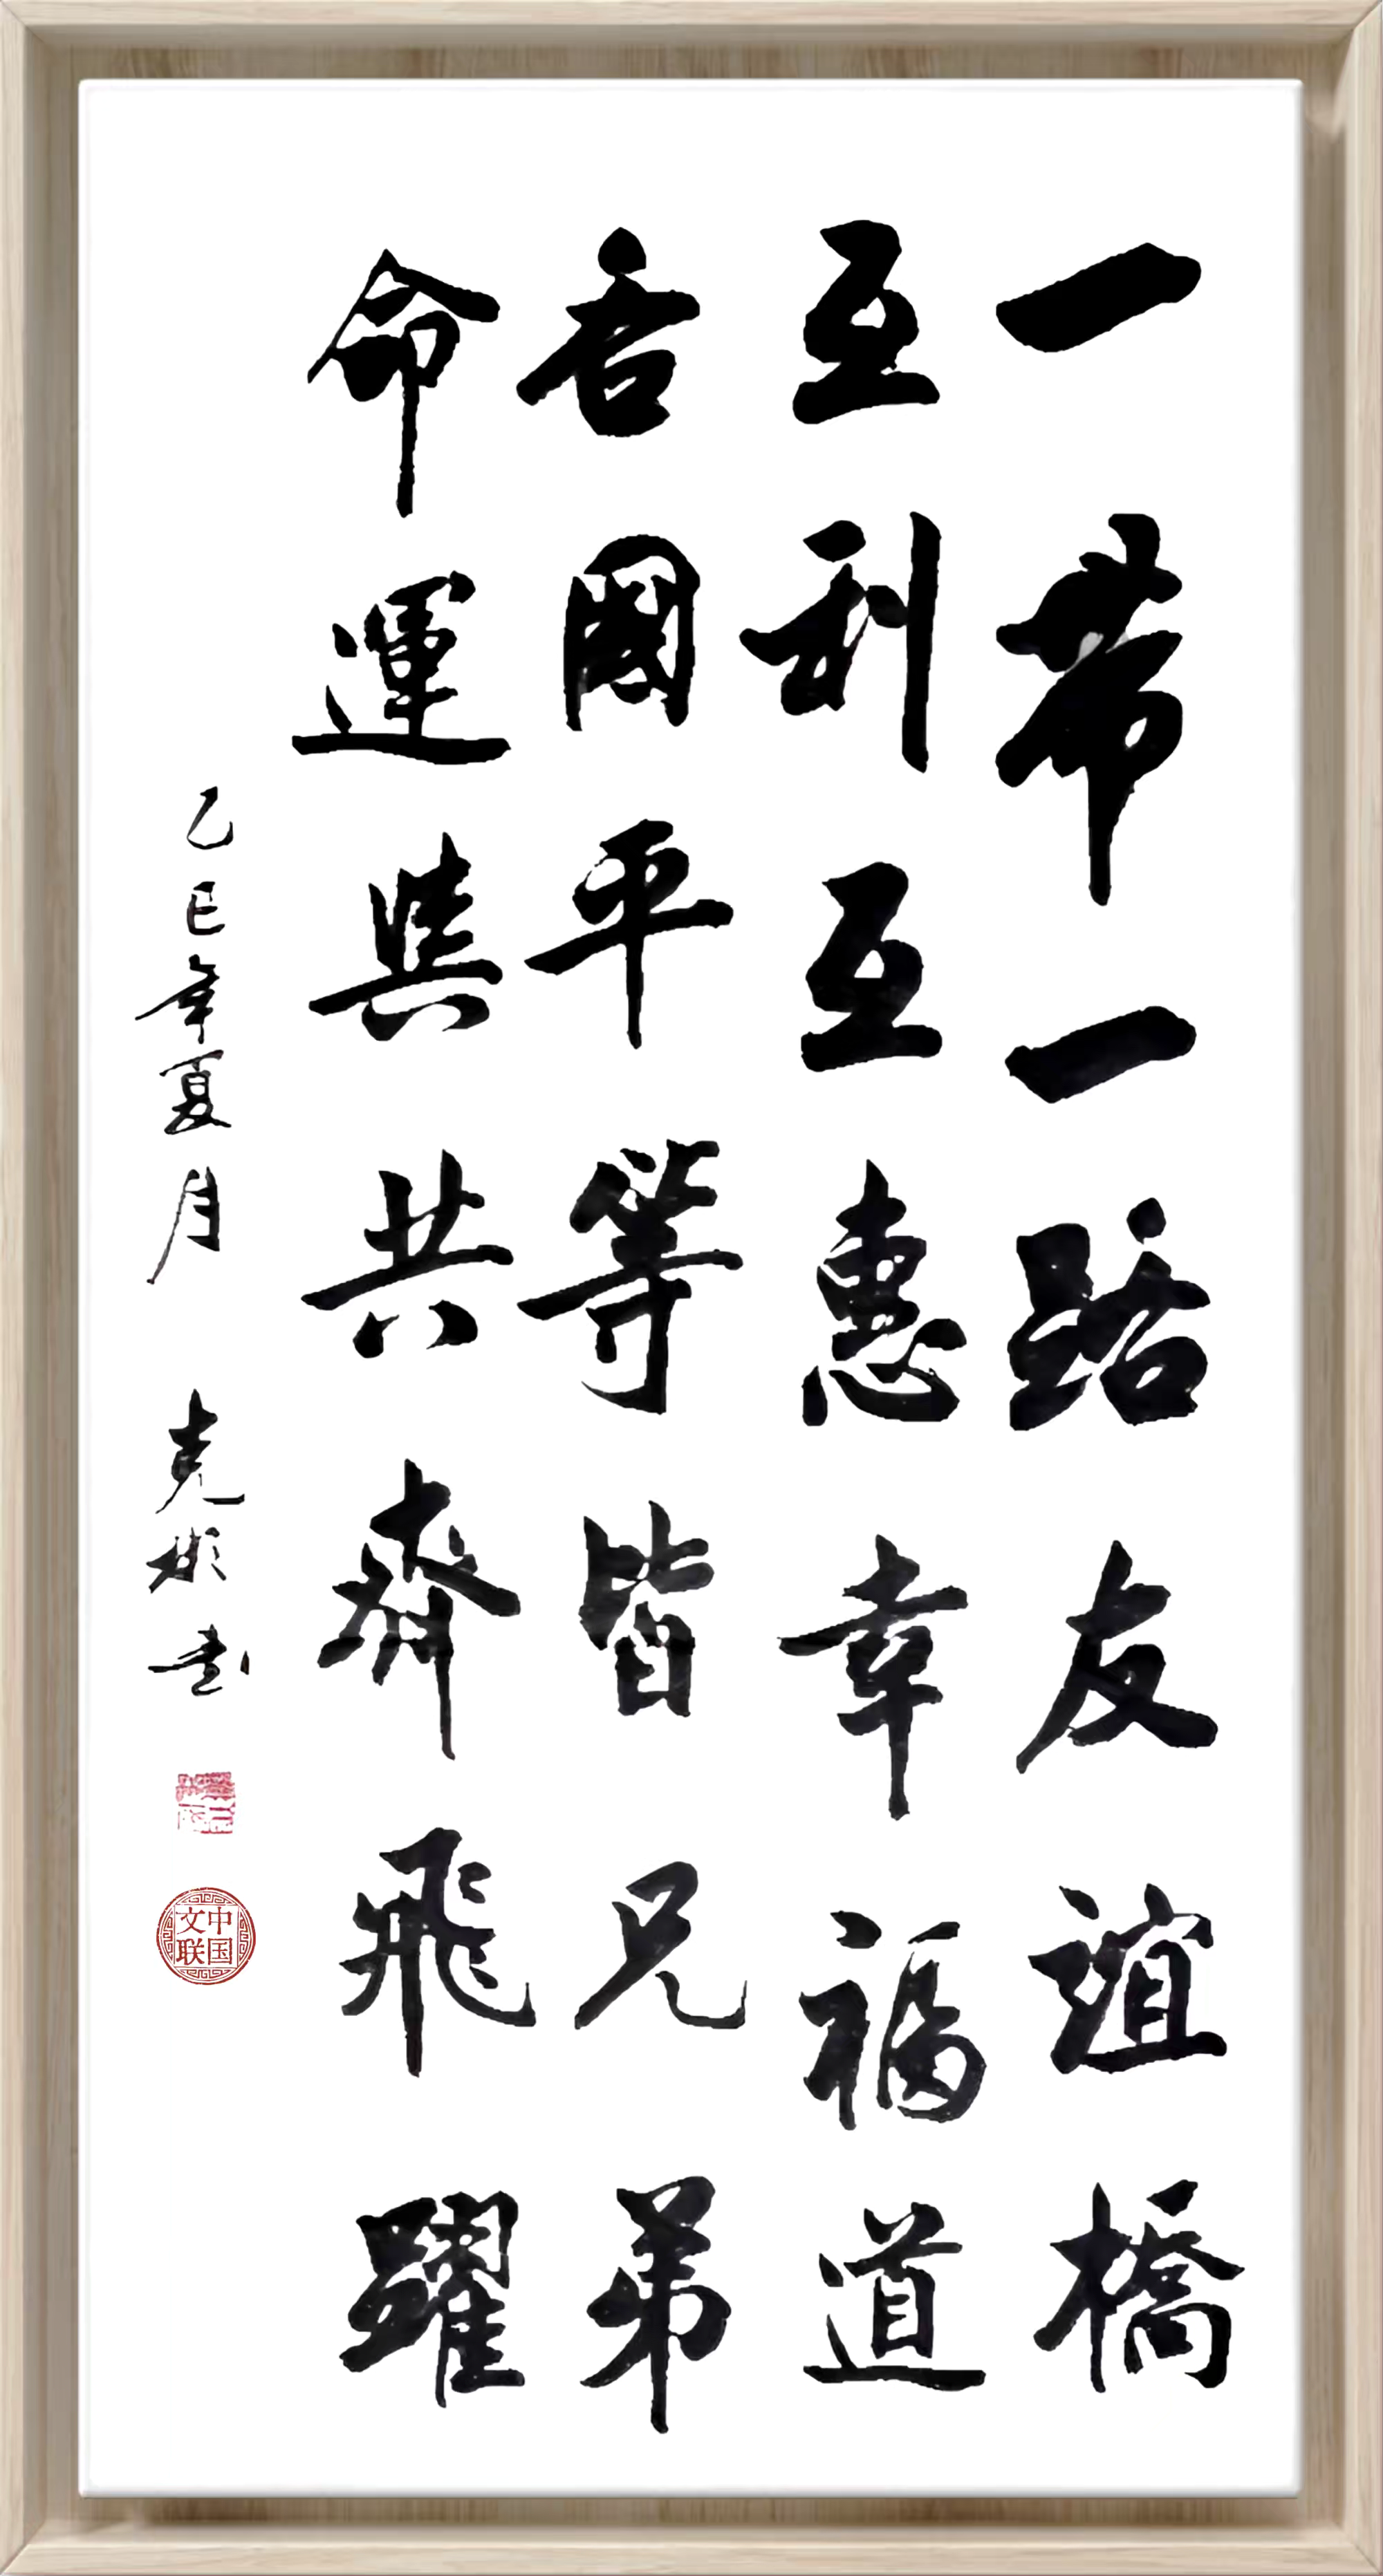 一帶一路友誼橋
互利互惠幸福道
各國平等皆兄弟
命運與共齊飛躍
乙巳年夏月 克彬书
中国文联